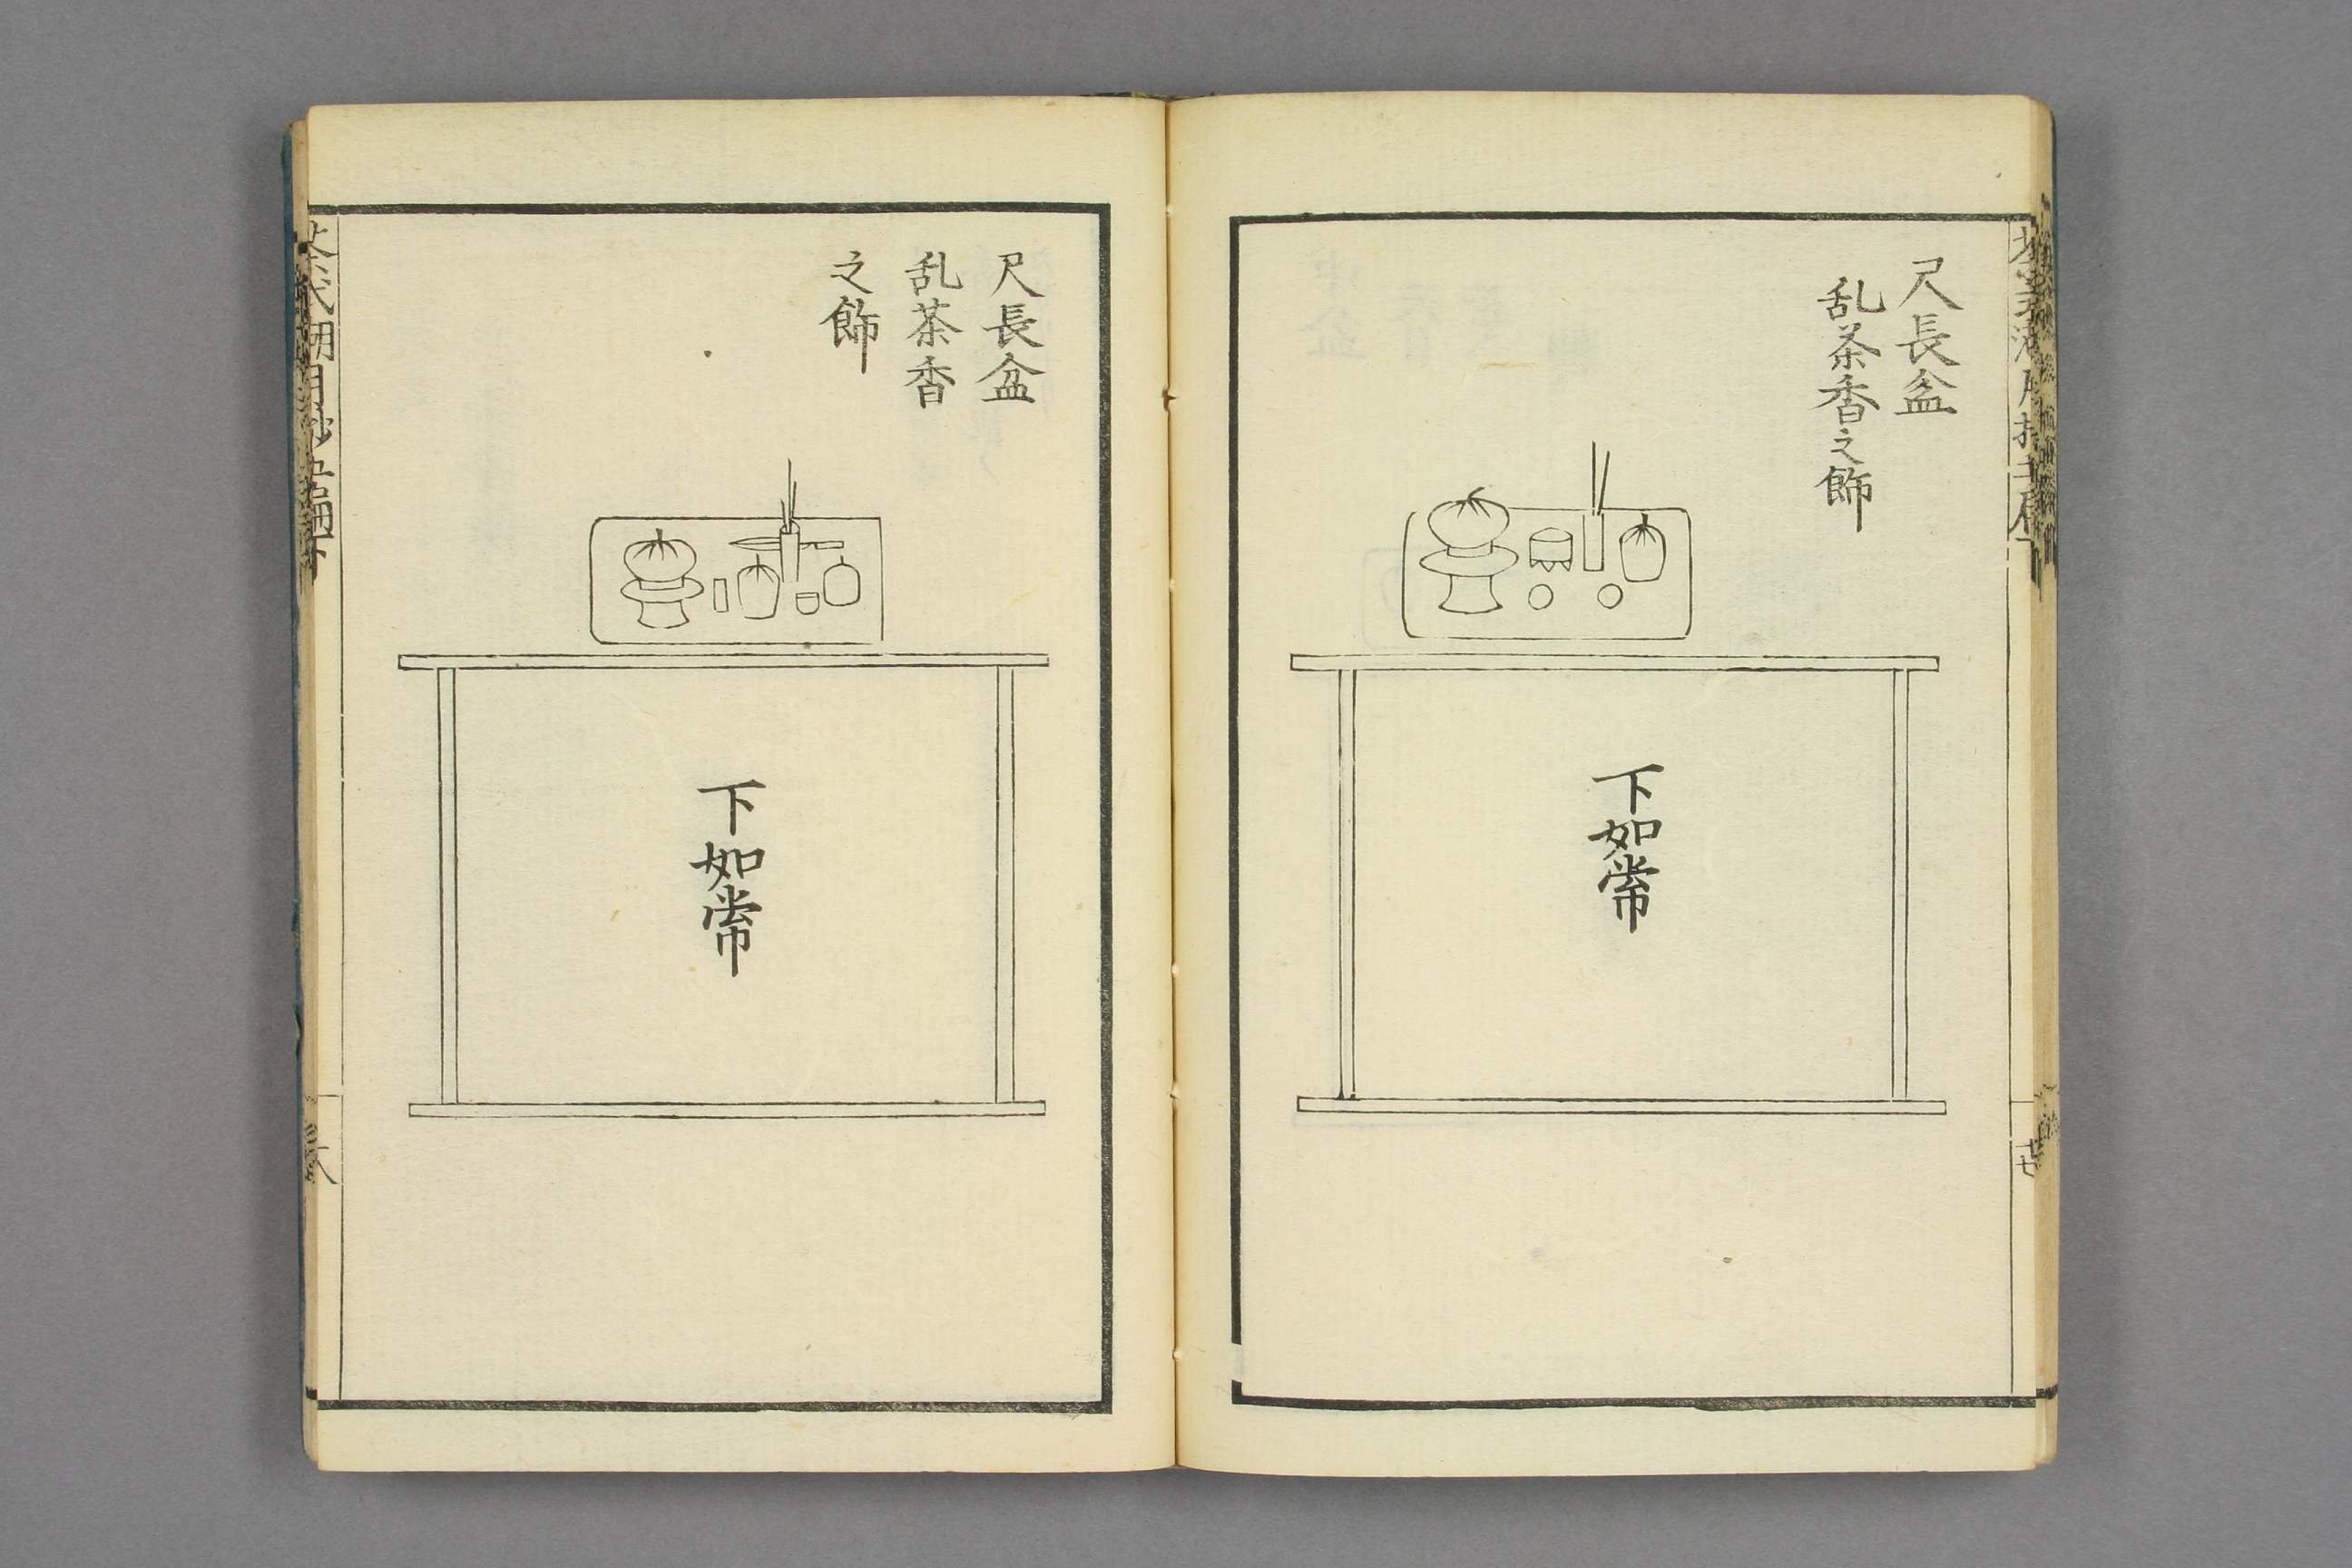 尺長盆
乱茶香之飾
下如常
廿七
尺長盆
乱茶香
之飾
下如常